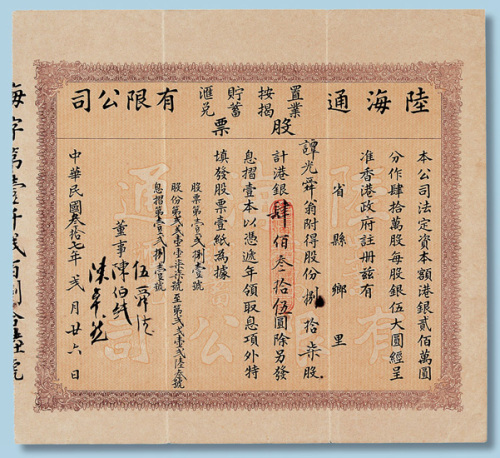 陸海通置業按揭貯蓄滙兌有限公司
股票
本公司法定資本額港銀貳佰萬圓
分作肆拾萬股每股銀伍大圓經呈
准香港政府註冊茲有
省縣鄉里
譚光舜翁附得股份捌拾柒股
計港銀肆佰叁拾伍圓除另發
息摺壹本以憑遞年領取息項外特
填發股票壹紙為據
股票第壹貳捌壹號
股份第貳貳壹壹柒柒號至第貳貳壹貳陸叁號
息摺第壹貳捌壹號
董事
中華民國叁拾七年貳月廿六日
海字第壹仟貳百捌拾壹號